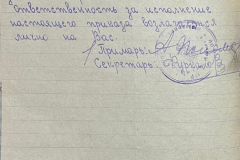 Ответственность за исполнение
настоящего приказа возлагается
лично на Вас.
Примарь:
Секретарь: